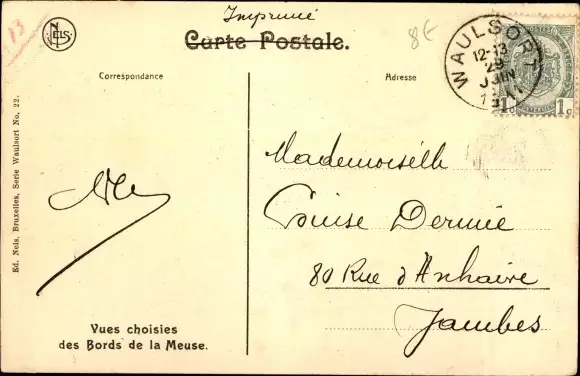 Imprimé
13
8€
NELS
Carte Postale.
WAULSORT
12-13
29
JUIN
1911
1c 1c
Correspondance
Adresse
Mademoiselle
Louise Dermie
80 Rue d'Anhaive
Jambes
Vues choisies
des Bords de la Meuse.
Ed. Nels, Bruxelles, Serie Waulsort No. 22.